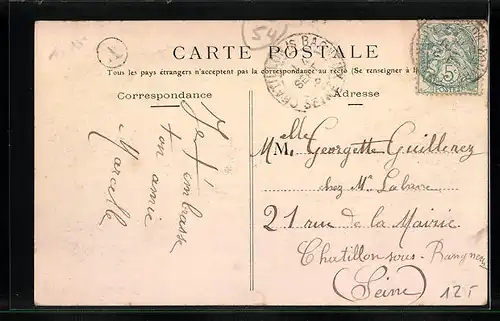 54
A
CARTE POSTALE
Tous les pays étrangers n'acceptent pas la correspondance au recto (Se renseigner à
Correspondance
Adresse
Je t'embrasse
ton amie
Marcelle
CHATILLON S BAGNEUX
SEINE
5c
POSTES
Melle
M. Georgette Guillerez
chez Mr
21 rue de la Mairie
Chatillon-sous-Bangneux
(Seine)
12F